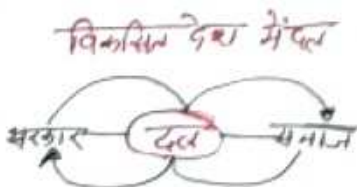 विकसित देश में दल
सरकार दल समाज